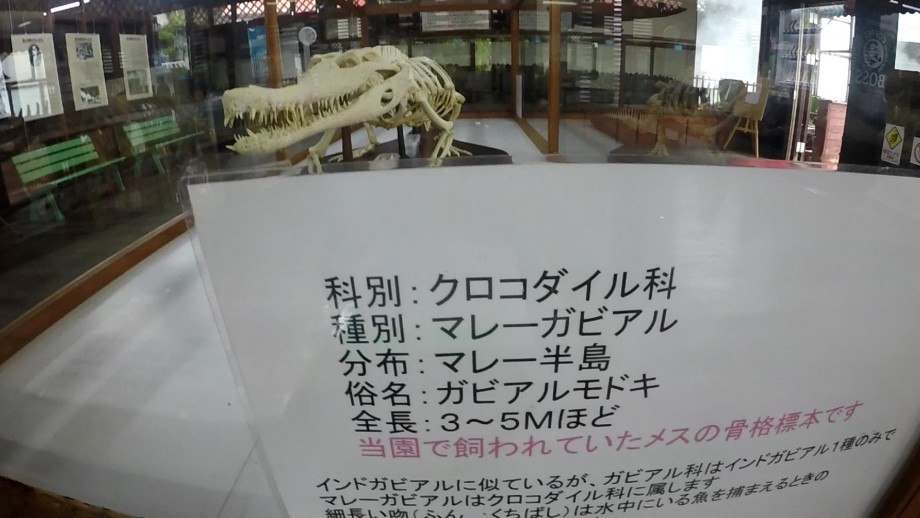 科別：クロコダイル科
種別：マレーガビアル
分布：マレー半島
俗名：ガビアルモドキ
全長：3～5Mほど
当園で飼われていたメスの骨格標本です
インドガビアルに似ているが、ガビアル科はインドガビアル1種のみで
マレーガビアルはクロコダイル科に属します
細長い吻(ふん、くちばし)は水中にいる魚を捕まえるときの
BOSS